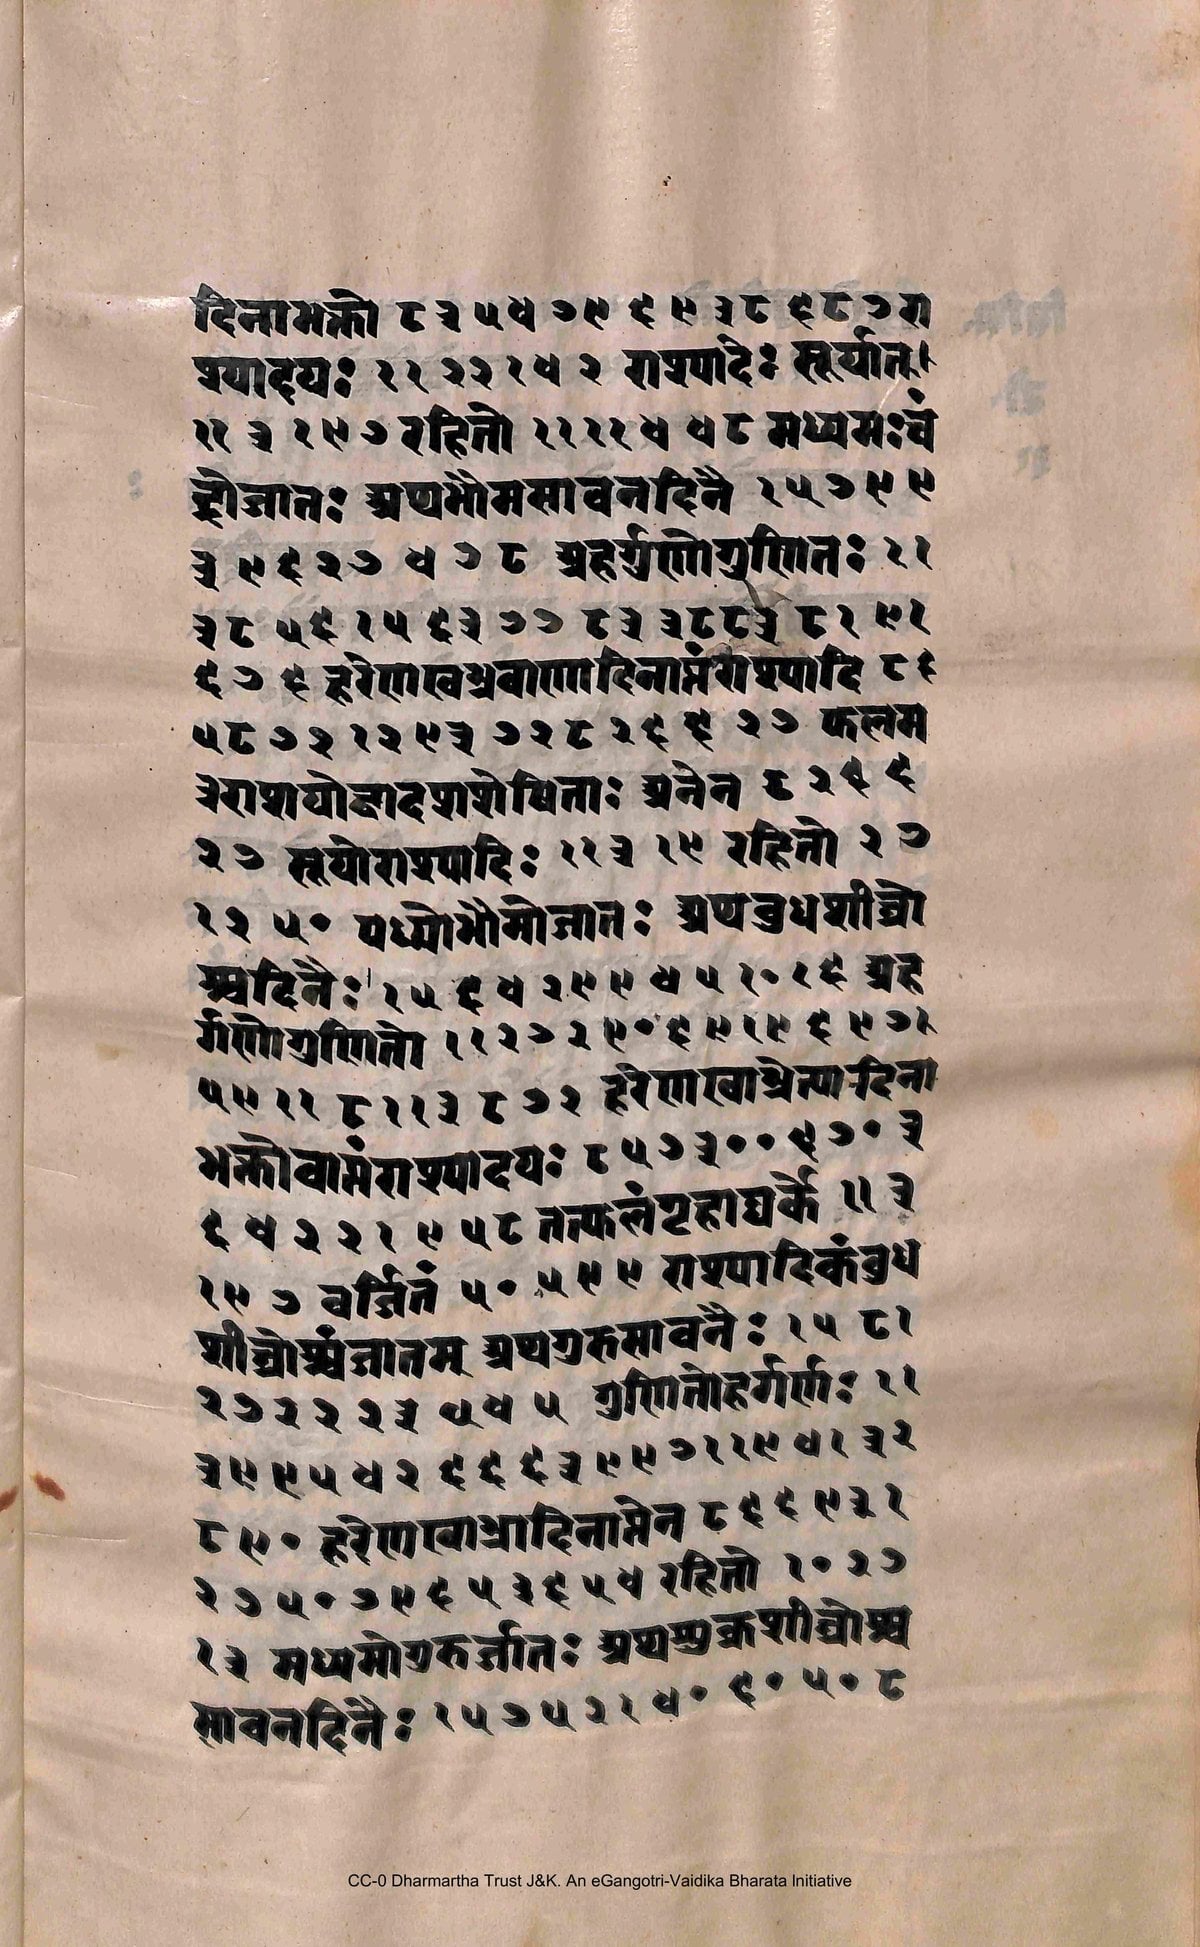 दिनाभक्तो ८ ३ ५ ४ ७ ९ ६ ९ ३ ८ ६ ८ ७ रा
श्यादयः ११ २२ १ ४ २ राश्यादेः सूर्यात्।
११ ३ १९ ७ रहितो ११ ११ ४ ४ ८ मध्यमः चं
द्रोजातः अथभौमसावनदिनै १ ५ ७ ९ ९
३ ९ ६ २ ७ ४ ७ ८ अहर्गुणोगुणितः ११
३ ८ ५ ६ १ ५ ६ ३ ७ ७ ८ ३ ३ ८ ८ ३ ८ १ ९ १
६ ७ ६ हरेणखाभ्रबाणादिनाप्तंराश्यादि ८ ६
५ ८ ७ २ १ २ ९ ३ ७ २ ८ २ ६ ६ २ ७ फलम
३राशयोद्वादशशेषिताः अनेन ८ २ ६ ६
२ ७ सूर्योराश्यादिः ११ ३ १९ रहितो २ ७
१ २ ५ ० मध्योभौमोजातः अथबुधशीघ्रो
च्चदिनैः १ ५ ६ ४ २ ९ ९ ४ ५ १ ० १ ६ अह
र्गणोगुणितो ११ २ ७ २ ९ ० ६ ९ १ ९ ६ ९ ७ १
५ ९ ११ ८ ११ ३ ८ ७ २ हरेणखाभ्रेत्यादिना
भक्तोवाप्तंराश्यादयः ८ ५ ७ ३ ० ० ६ ७ ० ३
६ ४ २ २ १ ९ ५ ८ तत्फलंगृहाद्यर्के ११ ३
१९ ७ वर्जितं ५ ० ५ ९ ९ राश्यादिकंबुध
शीघ्रोच्चंजातम् अथगुरुसावनैः १ ५ ८ १
२ ७ २ २ २ ३ ५ ४ ५ गुणितोहर्गणः ११
३ ९ ९ ५ ४ २ ६ ६ ६ ३ ९ ९ ७ ११ ९ ४ १ ३ २
८ ९ ० हरेणखाभ्रादिनाप्तेन ८ ६ ६ ९ ३ १
२ ७ ५ ० ७ ९ ६ ५ ३ ६ ५ ४ रहितो १ ० २ ७
१ ३ मध्यमोगुरुर्जातः अथशुक्रशीघ्रोच्च
सावनदिनैः १ ५ ७ ५ २ १ ४ ० ६ ० ५ ० ८
CC-0 Dharmartha Trust J&K. An eGangotri-Vaidika Bharata Initiative